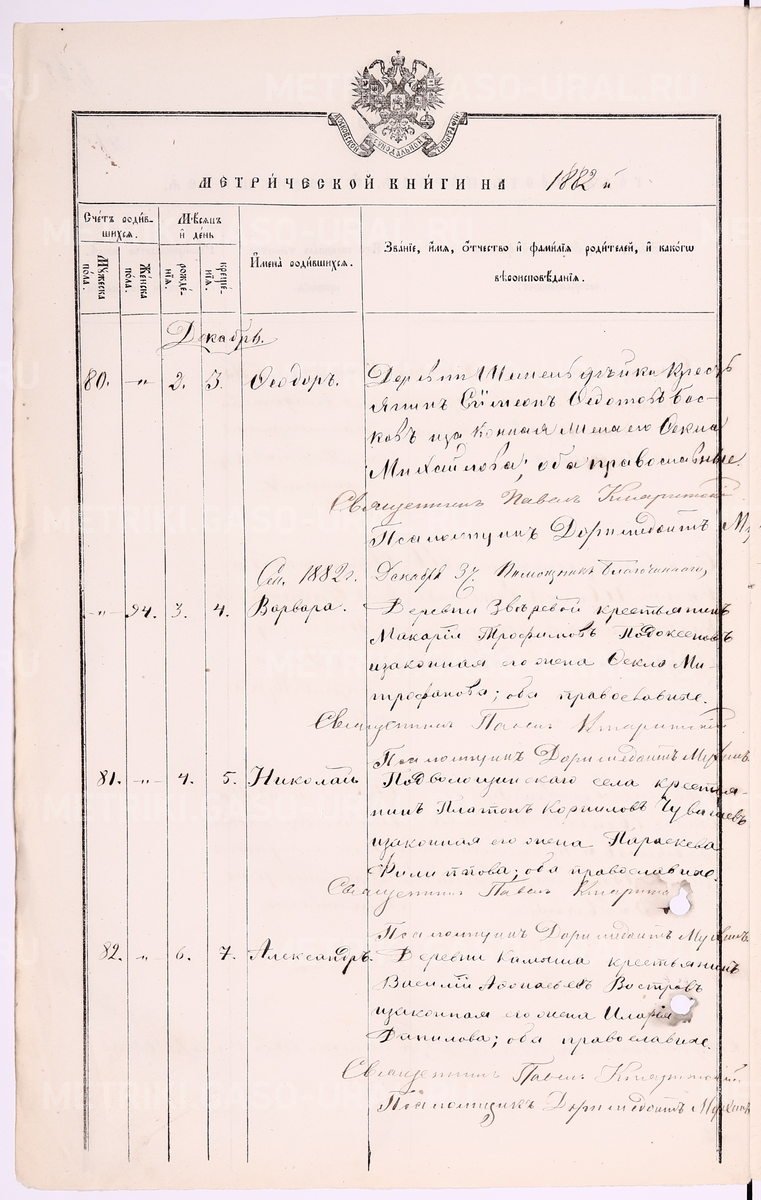 МОСКОВСКОЙ СѴНОДАЛЬНОЙ ТИПОГРАФІИ
МЕТРИ́ЧЕСКОЙ КНИ́ГИ НА 1882 й
Сче́тъ роди́в-
шихся.
Мꙋ́жеска
по́ла.
Же́нска
по́ла.
Мѣ́сяцъ
и҆ де́нь
рожде́-
нїя.
креще́-
нїя.
И҆мена̀ роди́вшихся.
Зва́нїе, и҆́мя, ѻ҆́тчество и҆ фами́лїя роди́телей, и҆ како́гѡ
вѣроисповѣ́данїя.
Декабрь.
80. -„- 2. 3. Ѳеодоръ. Деревни крестья
янинъ Сѵмеонъ Ѳедотовъ Бос-
ковъ и законная жена его Ѳекла
Михайлова; оба православные.
Священникъ Павелъ
Псаломщикъ Доримедонтъ
Сен. 1882 г. Декабря Помощникъ благочиннаго,
-„- 94. 3. 4. Варвара. Деревни Звѣревой крестьянинъ
Макарій Трофимовъ
и законная его жена Ѳекла Ми-
трофанова; оба православные.
Священникъ Павелъ
Псаломщикъ Доримедонтъ Мухинъ
81. -„- 4. 5. Николай Подволошинскаго села крестья-
нинъ Платонъ Корниловъ Чувашевъ
и законная его жена Параскева
Филиппова; оба православные.
Священникъ Павелъ
Псаломщикъ Доримедонтъ Мухинъ
82. -„- 6. 7. Александръ. Деревни Камыша крестьянинъ
Василій Востровъ
и законная его жена Иларія
Данилова; оба православные.
Священникъ Павелъ
Псаломщикъ Доримедонтъ Мухинъ